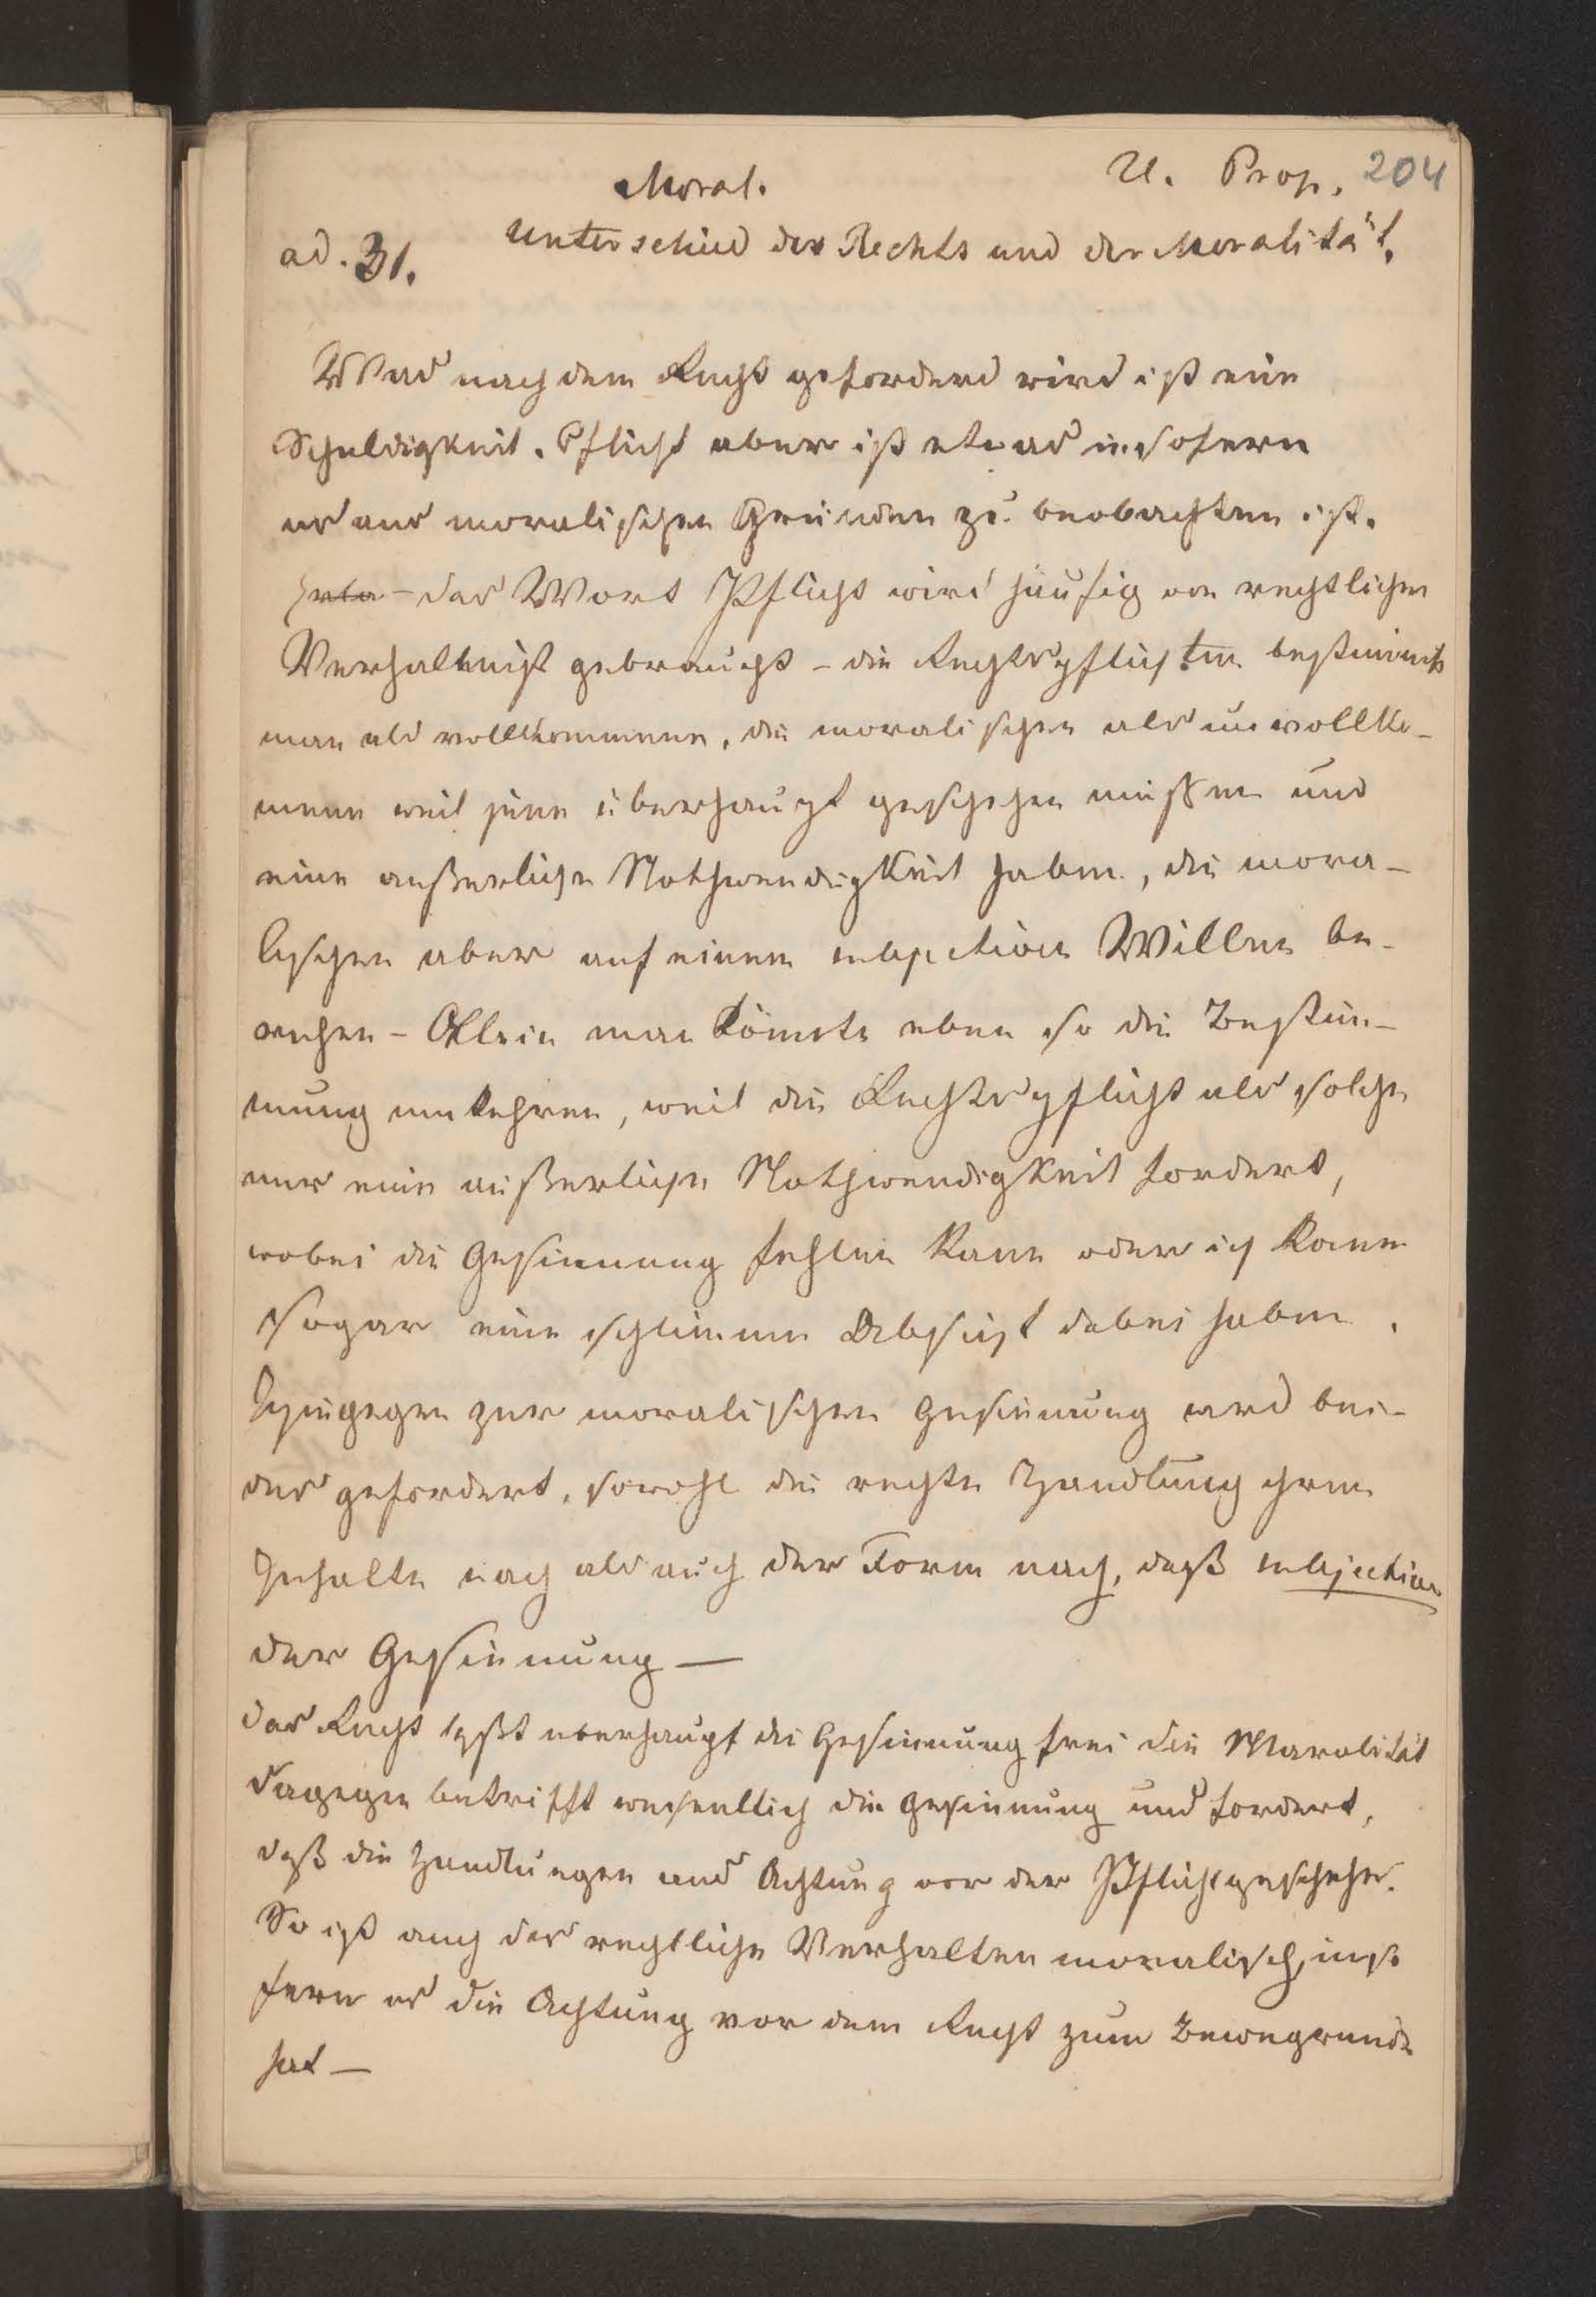 Moral.
U. Prop. 204
ad. 31.
Unterschied des Rechts und der Moralität.
Was nach dem Recht gefordert wird ist eine
Schuldigkeit. Pflicht aber ist etwas insofern
es aus moralischen Gründen zu beobachten ist.
– das Wort Pflicht wird häufig von rechtlichen
Verhaltnißt gebraucht – die Rechtspflichten bestimmte
man als vollkommene, die moralischen als unvollko-
mene weil jene überhaupt geschehen müßen und
eine außerliche Nothwendigkeit haben, die mora-
lischen aber auf einem subjectiven Willen be-
ruhen – Allein man könnte eben so die Bestim-
mung umkehren, weil die Rechtspflicht als solche
nur eine außerliche Nothwendigkeit fordert,
wobei die Gesinnung fehlen kann oder ich kann
sogar eine schlimme Absicht dabei haben.
Hingegen zur moralischen Gesinnung wird bei-
des gefordert, sowohl die rechte Handlung ihrem
Gehalte nach als auch der Form nach, daß subjective
der Gesinnung —
das Recht läßt uberhaupt die Gesinnung frei die Moralität
dagegen betrifft wesentlich die Gesinnung und fordert,
daß die Handlungen aus Achtung vor der Pflicht geschehe.
So ist auch das rechtliche Verhalten moralisch, inso
fern es die Achtung vor dem Recht zum Bewegrunde
hat —